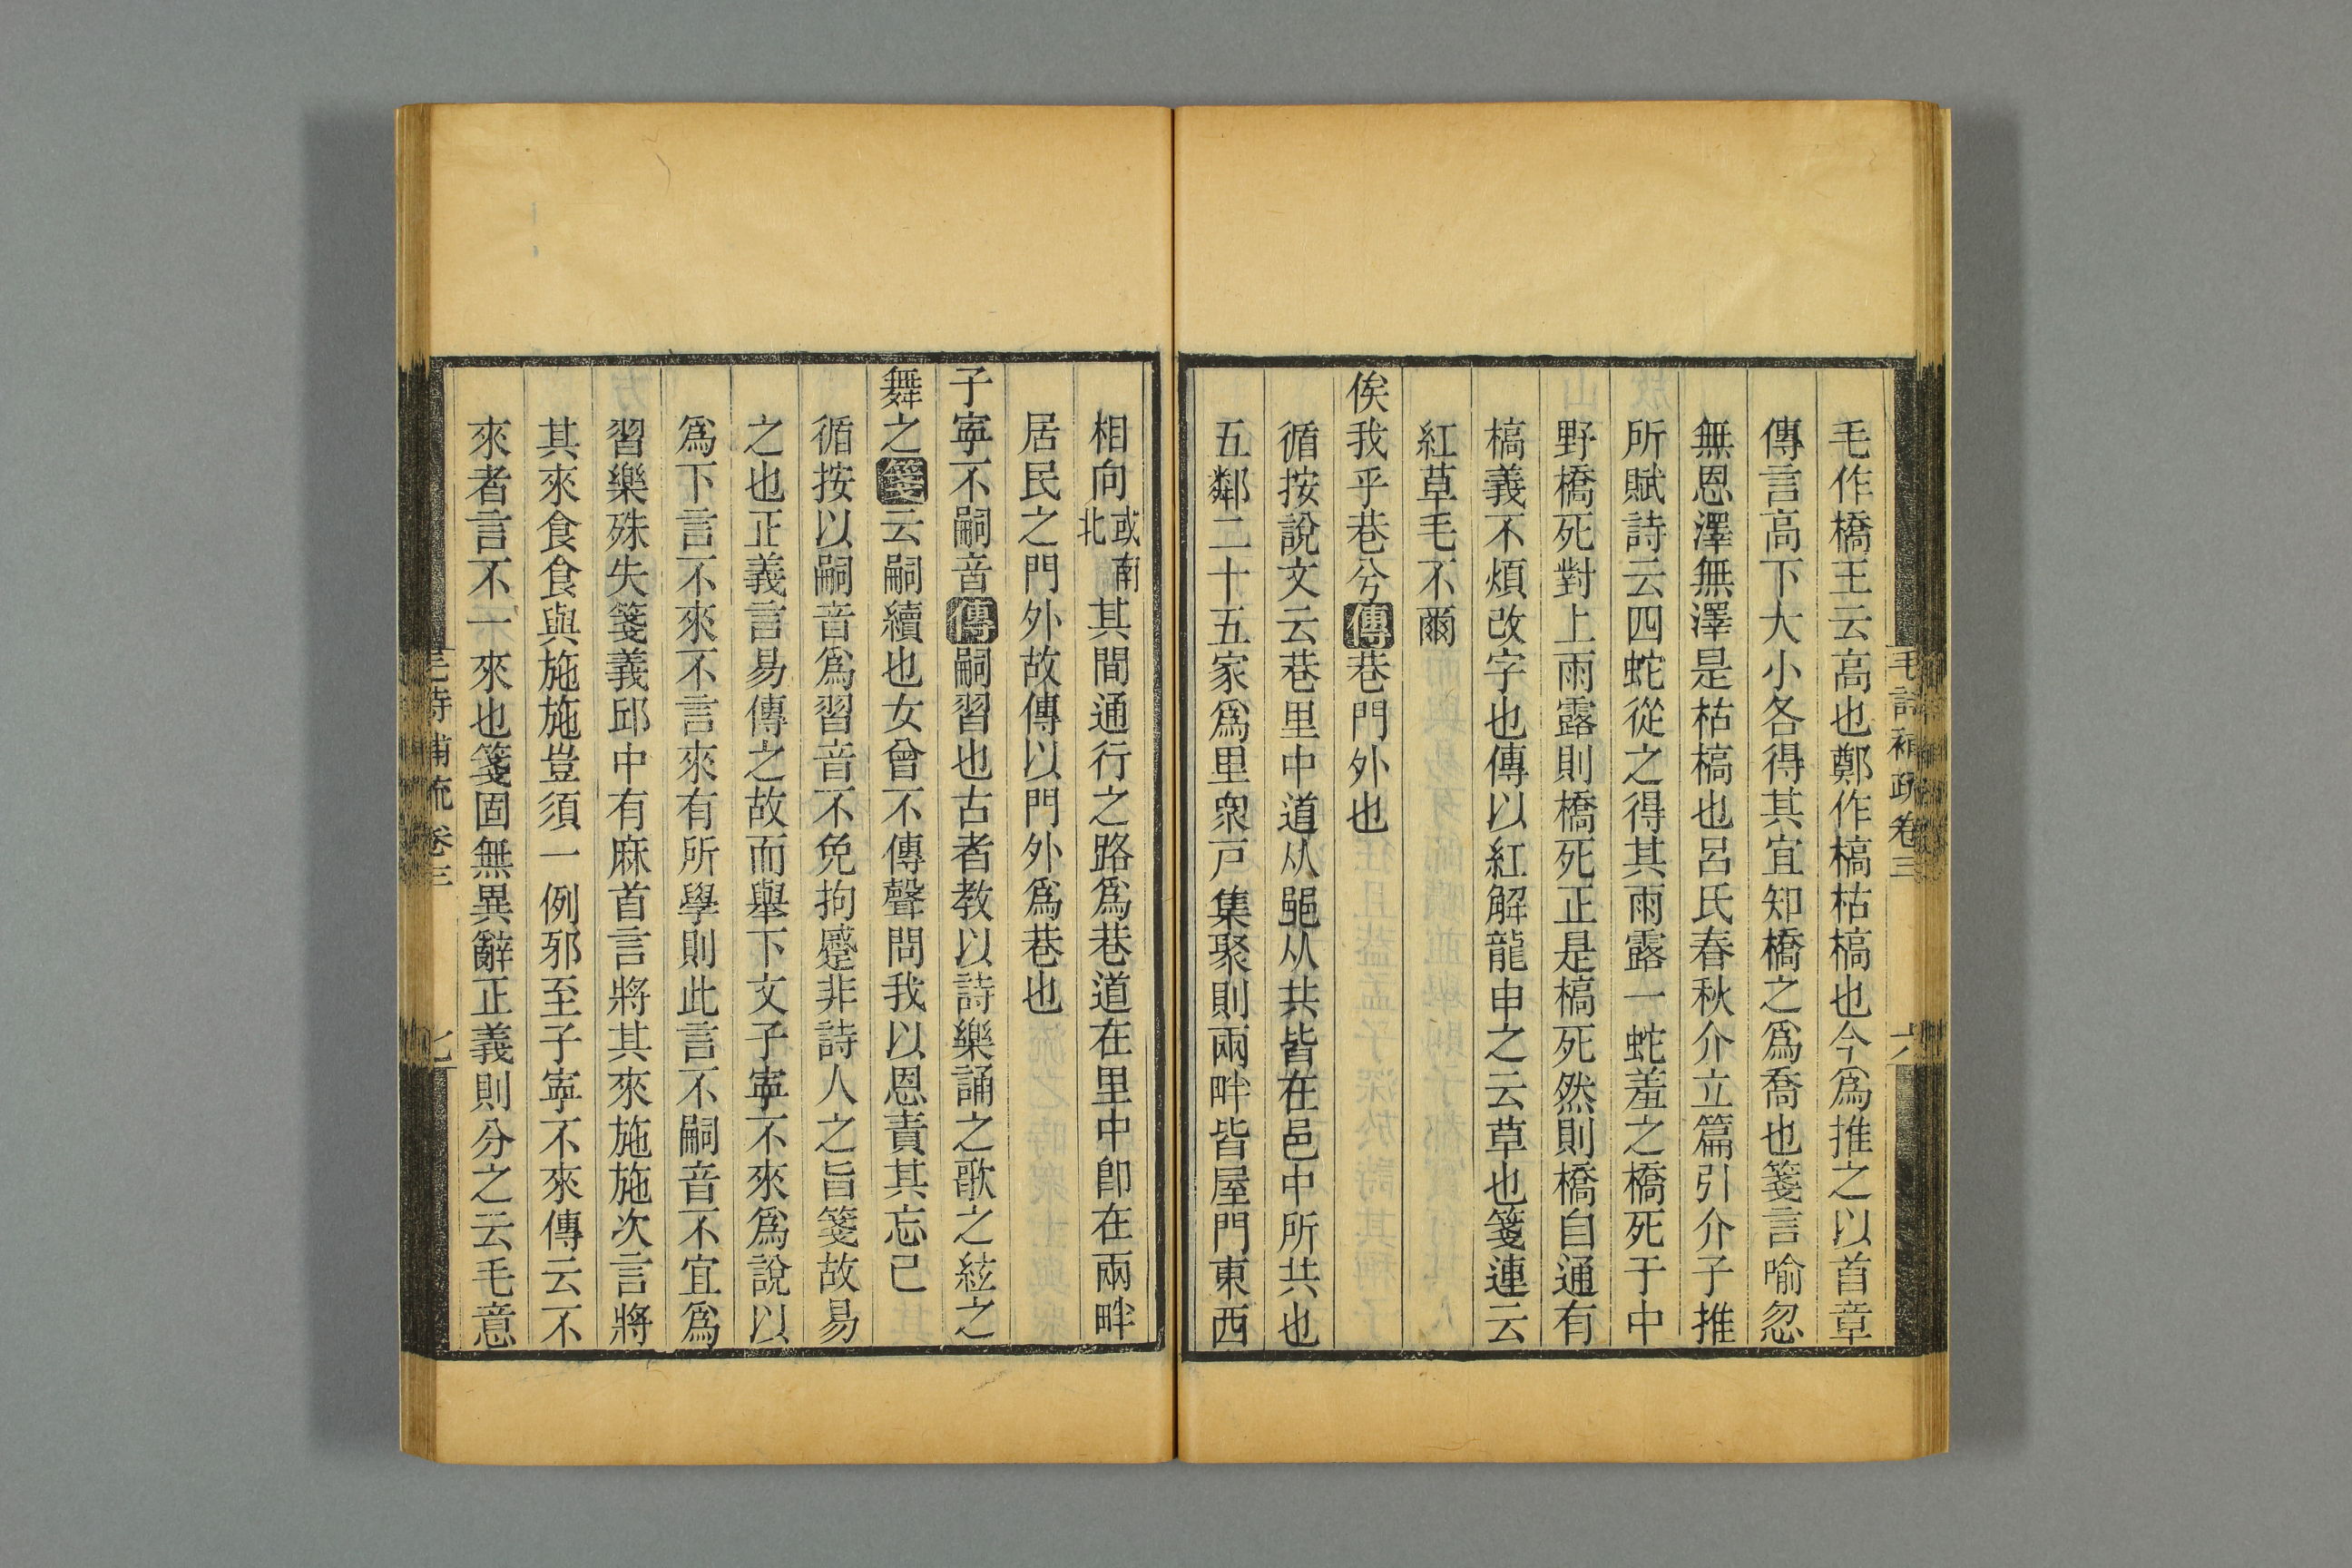 毛詩補疏卷三
六
毛作橋王云高也鄭作槁枯槁也今爲推之以首章
傳言高下大小各得其宜知橋之爲喬也箋言喻忽
無恩澤無澤是枯槁也呂氏春秋介立篇引介子推
所賦詩云四蛇從之得其雨露一蛇羞之橋死于中
野橋死對上雨露則橋死正是槁死然則橋自通有
槁義不煩改字也傳以紅解龍申之云草也箋連云
紅草毛不爾
俟我乎巷兮傳巷門外也
循按說文云巷里中道从𨛜从共皆在邑中所共也
五鄰二十五家爲里衆戸集聚則兩畔皆屋門東西
相向或南北其間通行之路爲巷道在里中卽在兩畔
居民之門外故傳以門外爲巷也
子寧不嗣音傳嗣習也古者教以詩樂誦之歌之絃之
舞之箋云嗣續也女曾不傳聲問我以恩責其忘己
循按以嗣音爲習音不免拘蹙非詩人之旨箋故易
之也正義言易傳之故而舉下文子寧不來爲說以
爲下言不來不言來有所學則此言不嗣音不宜爲
習樂殊失箋義邱中有麻首言將其來施施次言將
其來食食與施施豈須一例邪至子寧不來傳云不
來者言不一來也箋固無異辭正義則分之云毛意
毛詩補疏卷三
七